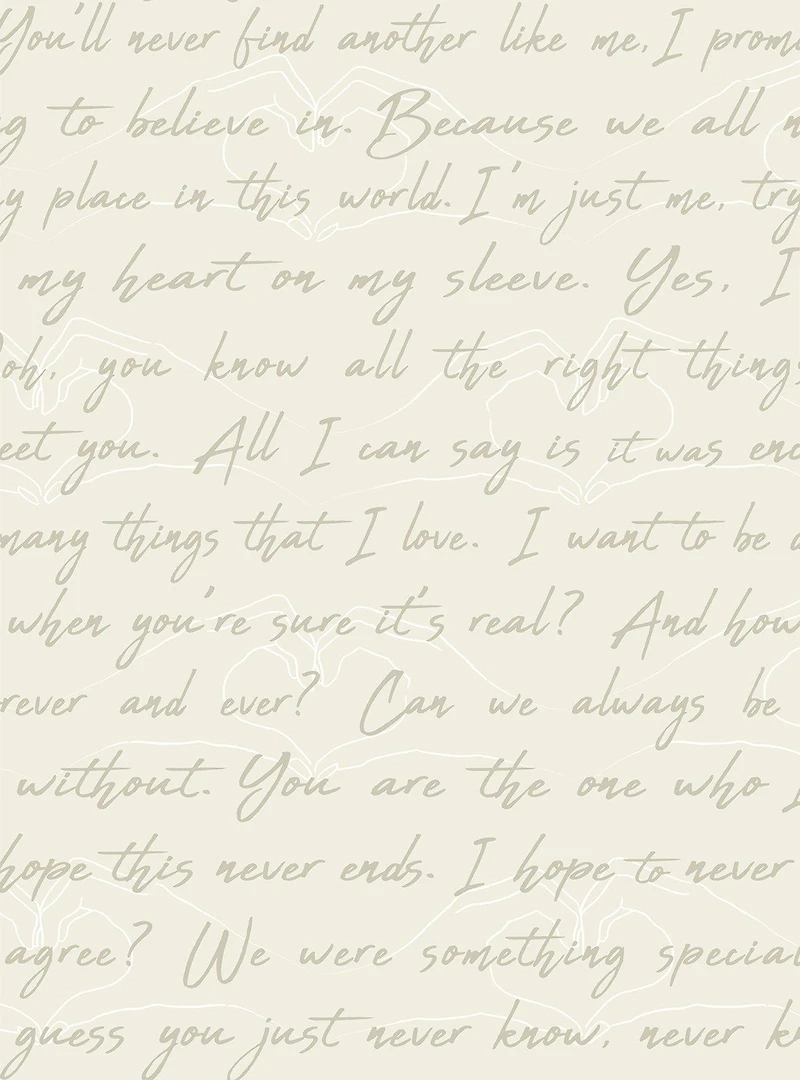 You'll never find another like me, I prom
g to believe in. Because we all n
y place in this world. I'm just me, try
my heart on my sleeve. Yes, I
oh, you know all the right things
eet you. All I can say is it was enc
many things that I love. I want to be a
when you're sure it's real? And how
rever and ever? Can we always be
without. You are the one who I
hope this never ends. I hope to never
agree? We were something special
guess you just never know, never kn